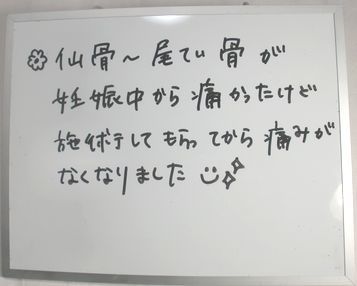 仙骨～尾てい骨が
妊娠中から痛かったけど
施術してもらってから痛みが
なくなりました